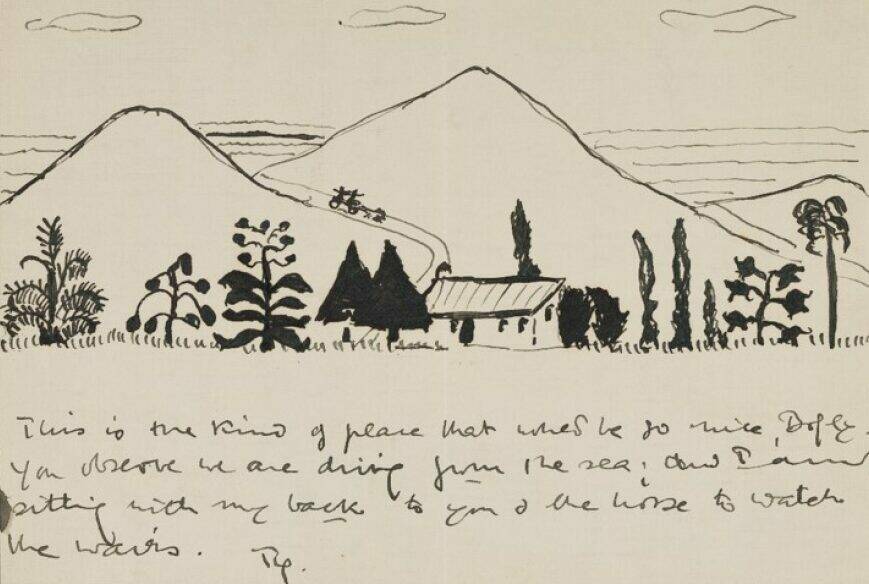 This is the kind of place that would be so nice, Bogey.
You observe we are driving from the sea; and I am
sitting with my back to you & the horse to watch
the waves. Tig.